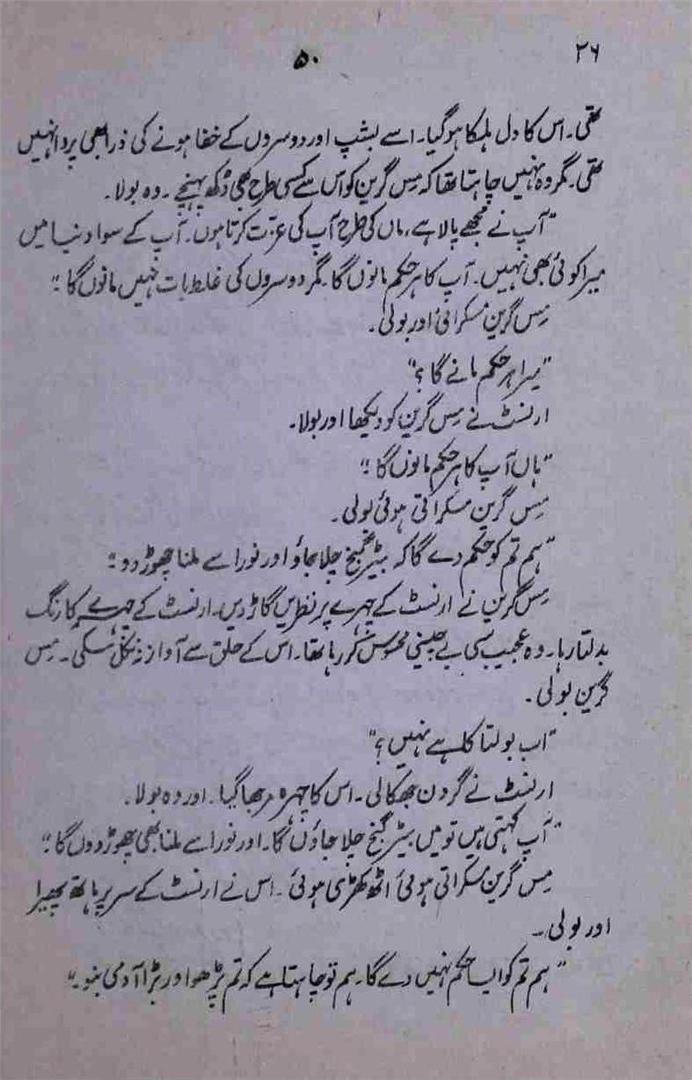 ۵۰ ۲۶
تھی۔ اس کا دل ہلکا ہو گیا۔ اسے بشپ اور دوسروں کے خفا ہونے کی ذرا بھی پروا نہیں
تھی۔ مگر وہ نہیں چاہتا تھا کہ مس گرین کو اس سے کسی طرح بھی دُکھ پہنچے۔ وہ بولا۔
"آپ نے مجھے پالا ہے، ماں کی طرح آپ کی عزت کرتا ہوں۔ آپ کے سوا دنیا میں
میرا کوئی بھی نہیں۔ آپ کا ہر حکم مانوں گا۔ مگر دوسروں کی غلط بات نہیں مانوں گا؛"
مِس گرین مسکرائی اور بولی۔
"میرا ہر حکم مانے گا؟"
ارنسٹ نے مِس گرین کو دیکھا اور بولا۔
"ہاں آپ کا ہر حکم مانوں گا؛"
مِس گرین مسکراتی ہوئی بولی۔
"ہم تم کو حکم دے گا کہ بیٹر گنج چلا جاؤ اور نورا سے ملنا چھوڑ دو؛"
مِس گرین نے ارنسٹ کے چہرے پر نظریں گاڑ دیں۔ ارنسٹ کے چہرے کا رنگ
بدلتا رہا۔ وہ عجیب سی بے چینی محسوس کر رہا تھا۔ اس کے حلق سے آواز نہ نکل سکی۔ مِس
گرین بولی۔
"اب بولتا کاہے نہیں؟"
ارنسٹ نے گردن جھکا لی۔ اس کا چہرہ مرجھا گیا۔ اور وہ بولا۔
"آپ کہتی ہیں تو میں بیٹر گنج چلا جاؤں گا۔ اور نورا سے ملنا بھی چھوڑ دوں گا؛"
مِس گرین مسکراتی ہوئی اٹھ کھڑی ہوئی۔ اس نے ارنسٹ کے سر پر ہاتھ پھیرا
اور بولی۔
"ہم تم کو ایسا حکم نہیں دے گا۔ ہم تو چاہتا ہے کہ تم پڑھو اور بڑا آدمی بنو۔"